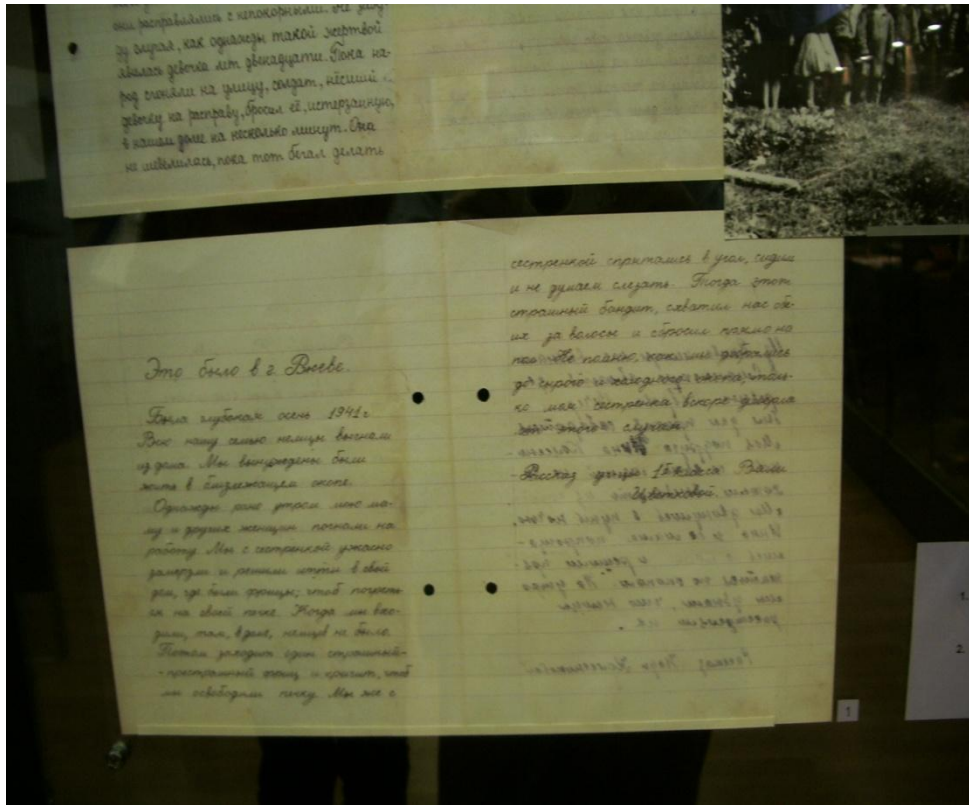 они расправлялись с непокорными.
ду случая, как однажды такой жертвой
явилась девочка лет двенадцати. Пока на-
род сгоняли на улицу, солдат, нёсший
девочку на расправу, бросил её, истерзанную,
в нашем доме на несколько минут. Она
не шевелилась, пока тот бегал делать
Это было в г. Ржеве.
Была глубокая осень 1941 г.
Всю нашу семью немцы выгнали
из дома. Мы вынуждены были
жить в близлежащем окопе.
Однажды рано утром мою ма-
му и других женщин погнали на
работу. Мы с сестренкой ужасно
замерзли и решили пойти в свой
дом, где были фрицы, чтоб погреть-
ся на своей печке. Когда мы вхо-
дили, там, в доме, немцев не было.
Потом заходит один страшный-
-престрашный фриц и кричит, чтоб
мы освободили печку. Мы же с
сестренкой спрятались в угол, сидим
и не думаем слезать. Тогда этот
страшный бандит, схватил нас обе-
их за волосы и сбросил прямо на
пол. Не помню, как мы добрались
до сырого и холодного окопа, толь-
ко моя сестренка вскоре умерла
от этого случая.
Рассказ ученицы класса Вали
Цветковой.
1
1.
2.